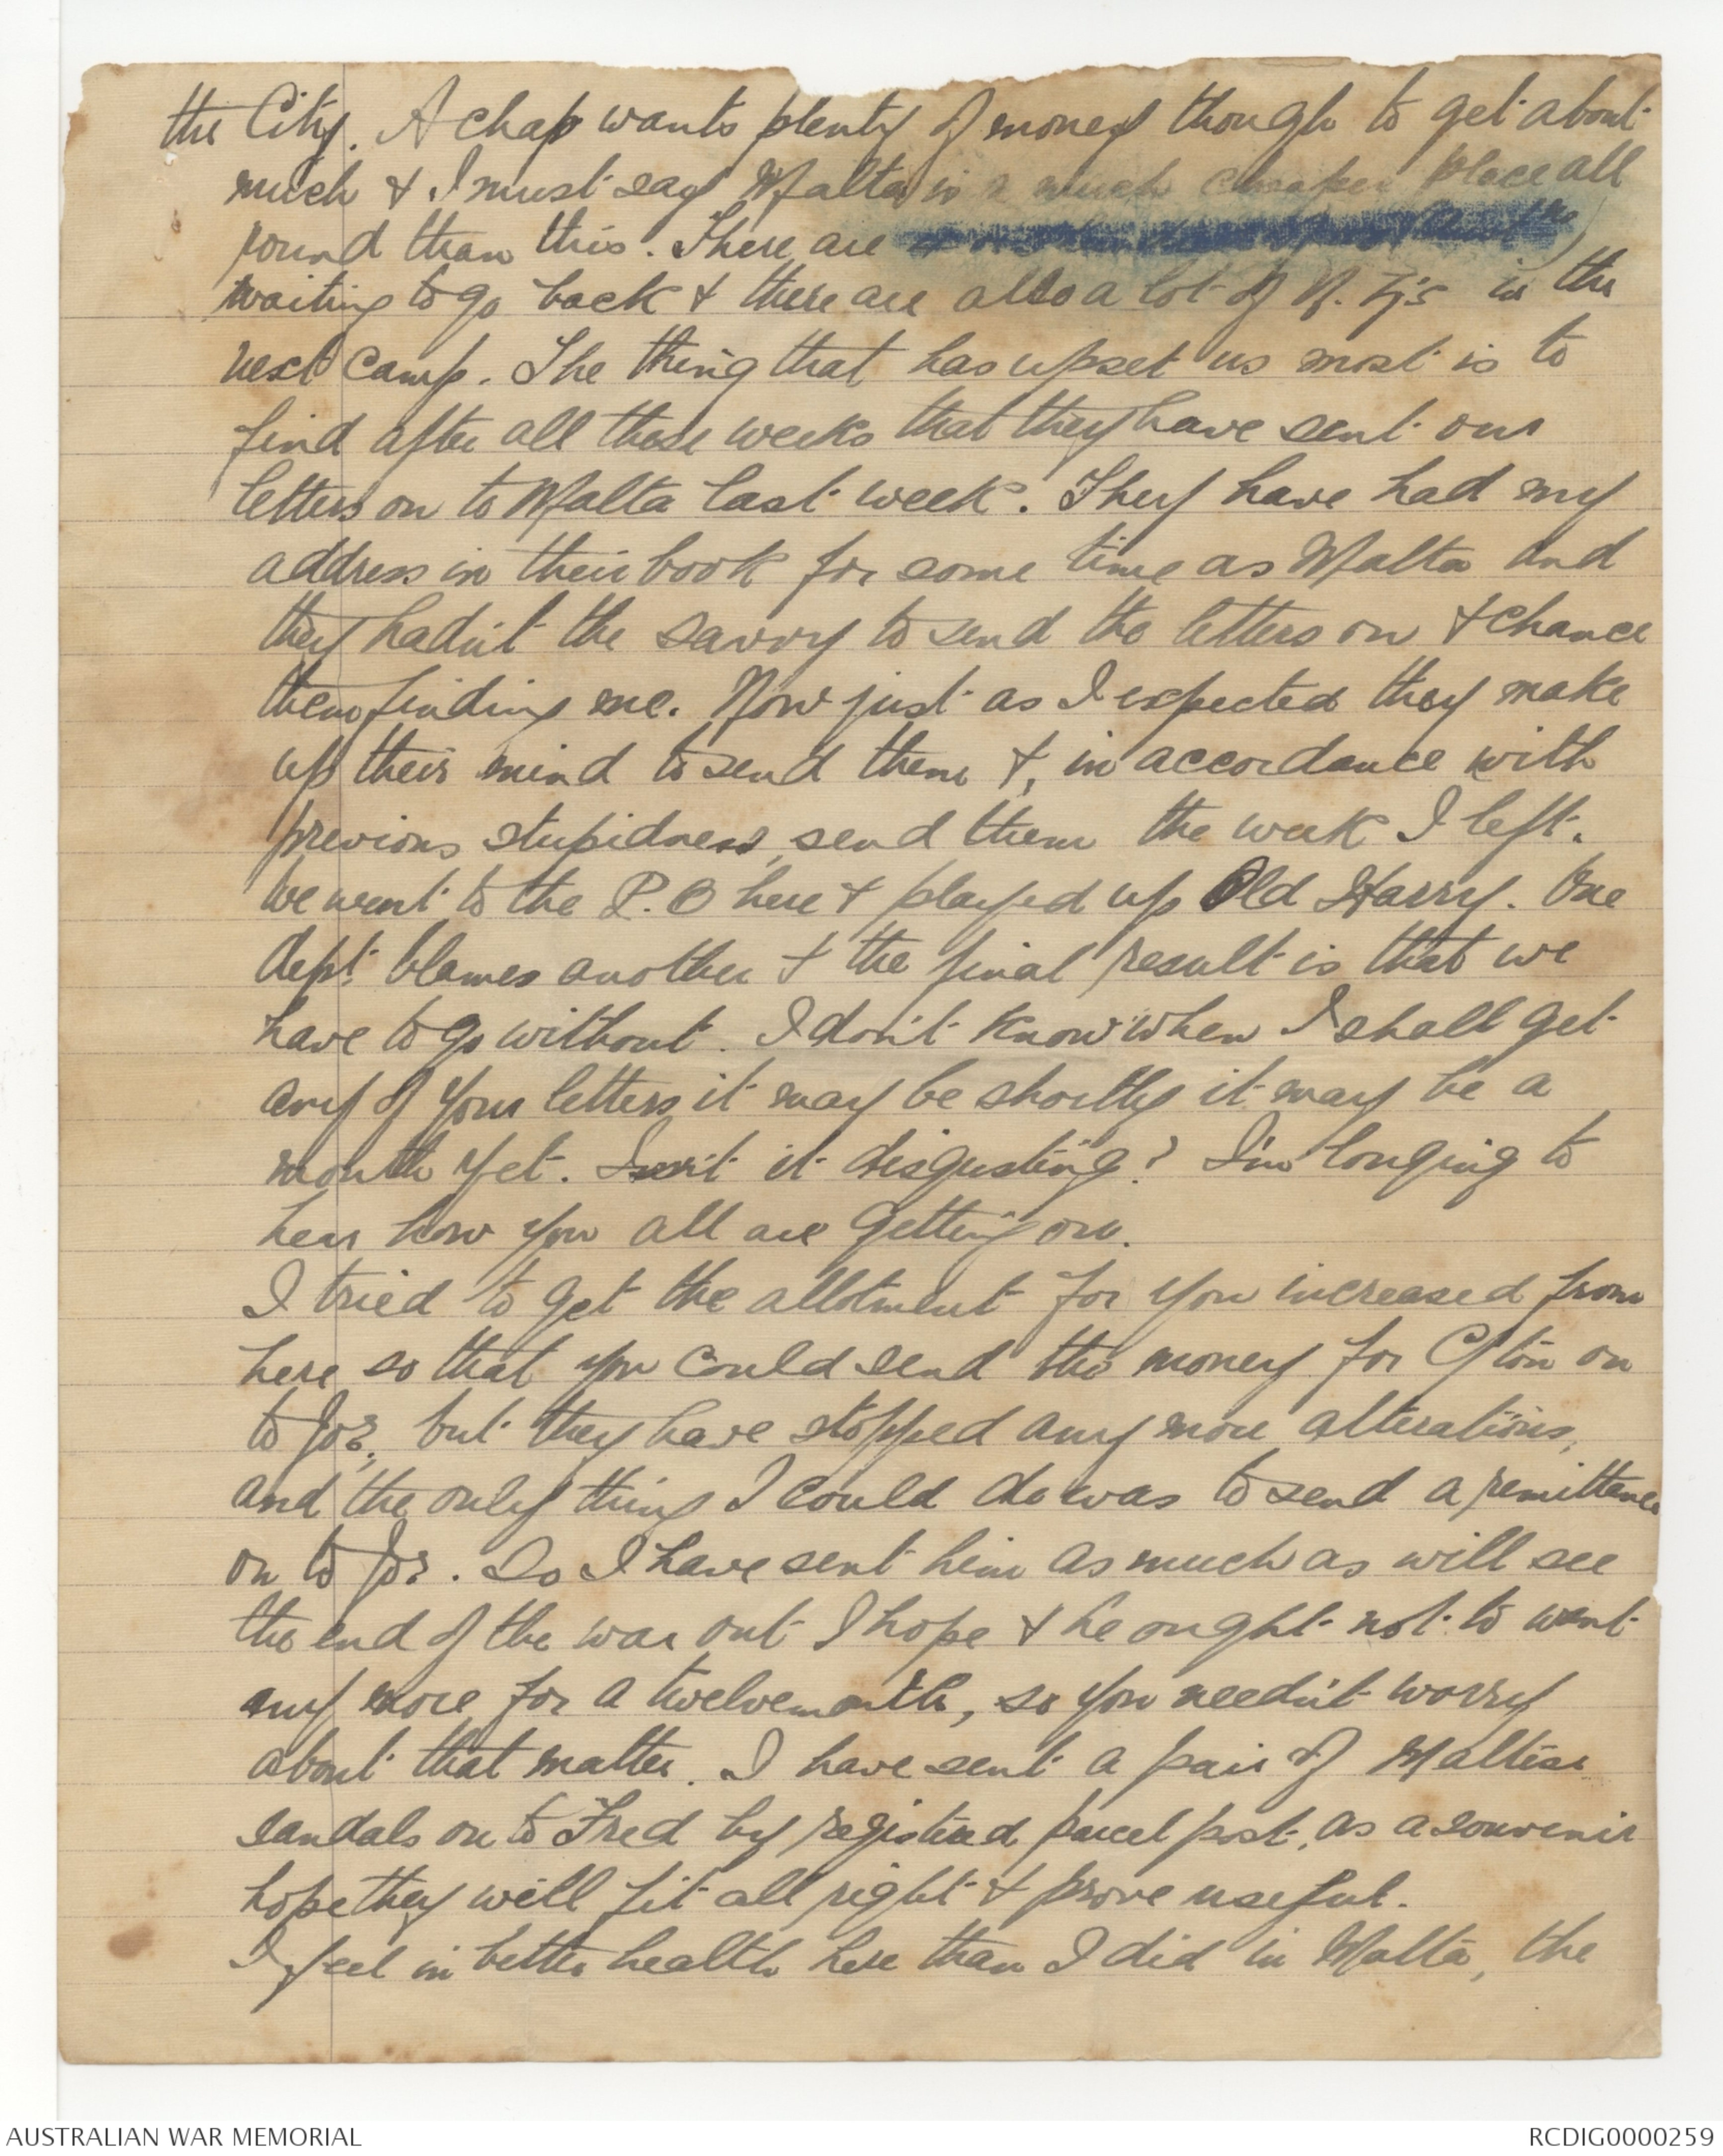 the City. A chap wants plenty of money though to get about
much & I must say Malta is a much cheaper place all
round than this. There are
waiting to go back & there are also a lot of N. Z's in the
next camp. The thing that has upset us most is to
find after all these weeks that they have sent our
letters on to Malta last week. They have had my
address in their book for some time as Malta and
they hadn't the savvy to send the letters on & chance
them finding me. Now just as I expected they make
up their mind to send them &, in accordance with
previous stupidness, send them the week I left.
We went to the P.O here & played up Old Harry. One
dept. blames another & the final result is that we
have to go without. I don't know when I shall get
any of your letters, it may be shortly it may be a
month yet. Isn't it disgusting? I'm longing to
hear how you all are getting on.
I tried to get the allotment for you increased from
here so that you could send the money for on
to Jos, but they have stopped any more alterations,
and the only thing I could do was to send a remittance
on to Jos. So I have sent him as much as will see
the end of the war out I hope & he ought not to want
any more for a twelvemonth, so you needn't worry
about that matter. I have sent a pair of Maltese
sandals on to Fred by registered parcel post, as a souvenir
hope they will fit all right & prove useful.
I feel in better health here than I did in Malta, the
AUSTRALIAN WAR MEMORIAL
RCDIG0000259